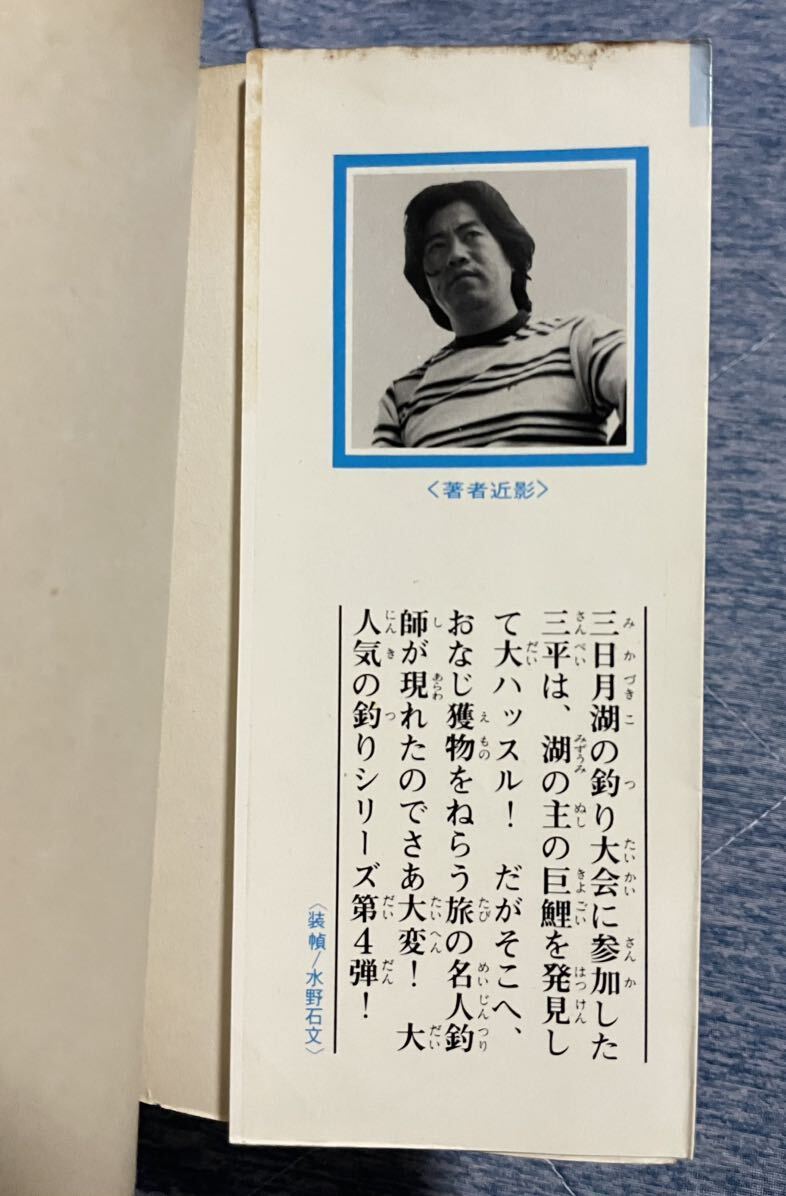 〈著者近影〉
三日月湖の釣り大会に参加した
三平は、湖の主の巨鯉を発見し
て大ハッスル！　だがそこへ、
おなじ獲物をねらう旅の名人釣
師が現れたのでさあ大変！　大
人気の釣りシリーズ第4弾！
〈装幀/水野石文〉